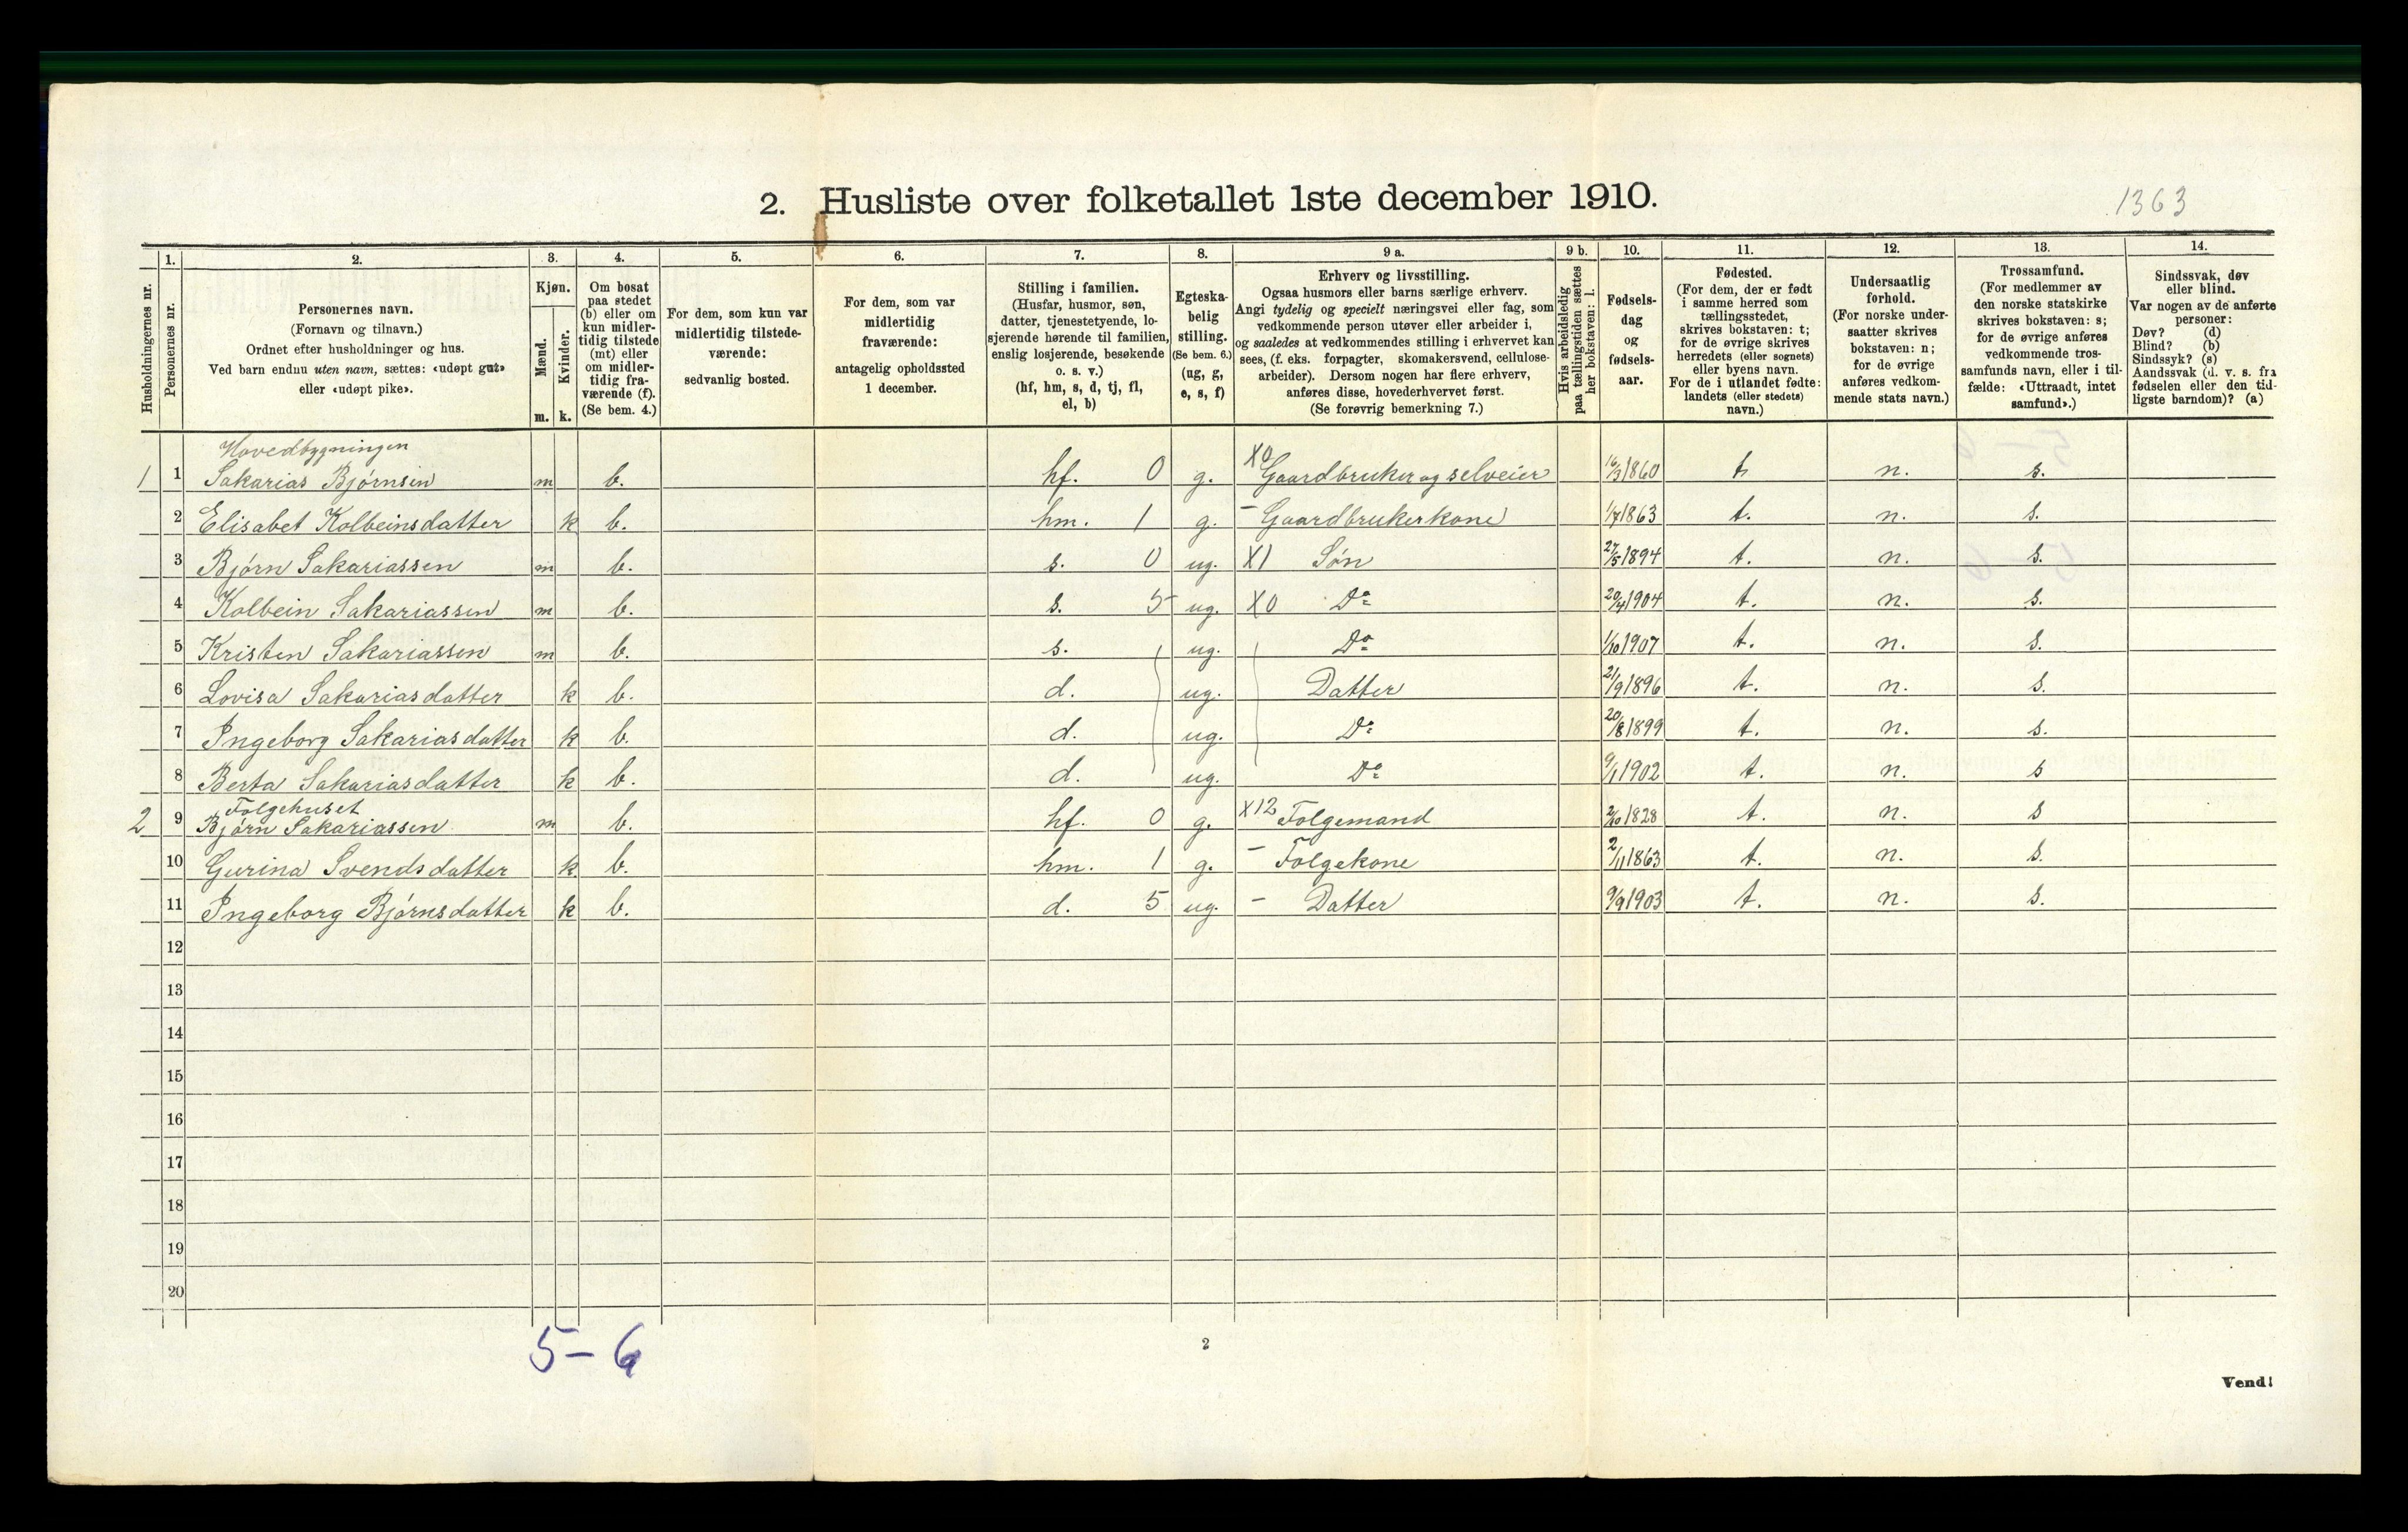 2. Husliste over folketallet 1ste december 1910.
1363
Husholdningernes nr.
1. Personernes nr.
2. Personernes navn. (Fornavn og tilnavn.) Ordnet efter husholdninger og hus. Ved barn endnu uten navn, sættes: «udøpt gut» eller «udøpt pike».
3. Kjøn. Mænd. m. Kvinder. k.
4. Om bosat paa stedet (b) eller om kun midlertidig tilstede (mt) eller om midlertidig fraværende (f). (Se bem. 4.)
5. For dem, som kun var midlertidig tilstedeværende: sedvanlig bosted.
6. For dem, som var midlertidig fraværende: antagelig opholdssted 1 december.
7. Stilling i familien. (Husfar, husmor, søn, datter, tjenestetyende, losjerende hørende til familien, enslig losjerende, besøkende o. s. v.) (hf, hm, s, d, tj, fl, el, b)
8. Egteskabelig stilling. (Se bem. 6.) (ug, g, e, s, f)
9 a. Erhverv og livsstilling. Ogsaa husmors eller barns særlige erhverv. Angi tydelig og specielt næringsvei eller fag, som vedkommende person utøver eller arbeider i, og saaledes at vedkommendes stilling i erhvervet kan sees, (f. eks. forpagter, skomakersvend, cellulosearbeider). Dersom nogen har flere erhverv, anføres disse, hovederhvervet først. (Se forøvrig bemerkning 7.)
9 b. Hvis arbeidsledig paa tællingstiden sættes her bokstaven: l.
10. Fødselsdag og fødselsaar.
11. Fødested. (For dem, der er født i samme herred som tællingsstedet, skrives bokstaven: t; for de øvrige skrives herredets (eller sognets) eller byens navn. For de i utlandet fødte: landets (eller stedets) navn.)
12. Undersaatlig forhold. (For norske undersaatter skrives bokstaven: n; for de øvrige anføres vedkommende stats navn.)
13. Trossamfund. (For medlemmer av den norske statskirke skrives bokstaven: s; for de øvrige anføres vedkommende trossamfunds navn, eller i tilfælde: «Uttraadt, intet samfund».)
14. Sindssvak, døv eller blind. Var nogen av de anførte personer: Døv? (d) Blind? (b) Sindssyk? (s) Aandssvak (d. v. s. fra fødselen eller den tidligste barndom)? (a)
Hovedbygningen
1 1 Sakarias Bjørnsen m b. hf. 0 g. X0 Gaardbruker og selveier 16/3 1860 t. n. s.
2 Elisabet Kolbeinsdatter k b. hm. 1 g. - Gaardbrukerkone 1/7 1863 t. n. s.
3 Bjørn Sakariassen m b. s. 0 ug. X1 Søn 27/5 1894 t. n. s.
4 Kolbein Sakariassen m b. s. 5 ug. X0 Do 20/4 1904 t. n. s.
5 Kristen Sakariassen m b. s. ug. Do 1/10 1907 t. n. s.
6 Lovisa Sakariasdatter k b. d. ug. Datter 21/9 1896 t. n. s.
7 Ingeborg Sakariasdatter k b. d. ug. Do 20/8 1899 t. n. s.
8 Berta Sakariasdatter k b. d. ug. Do 9/1 1902 t. n. s
Folgehuset
2 9 Bjørn Sakariassen m b. hf. 0 g. X12 Folgemand 2/10 1828 t. n. s
10 Gurina Svendsdatter k. b. hm. 1 g. - Folgekone 2/11 1863 t. n. s.
11 Ingeborg Bjørnsdatter k b. d. 5 ug. - Datter 9/9 1903 t. n. s.
12
13
14
15
16
17
18
19
20
5-6
2
Vend!